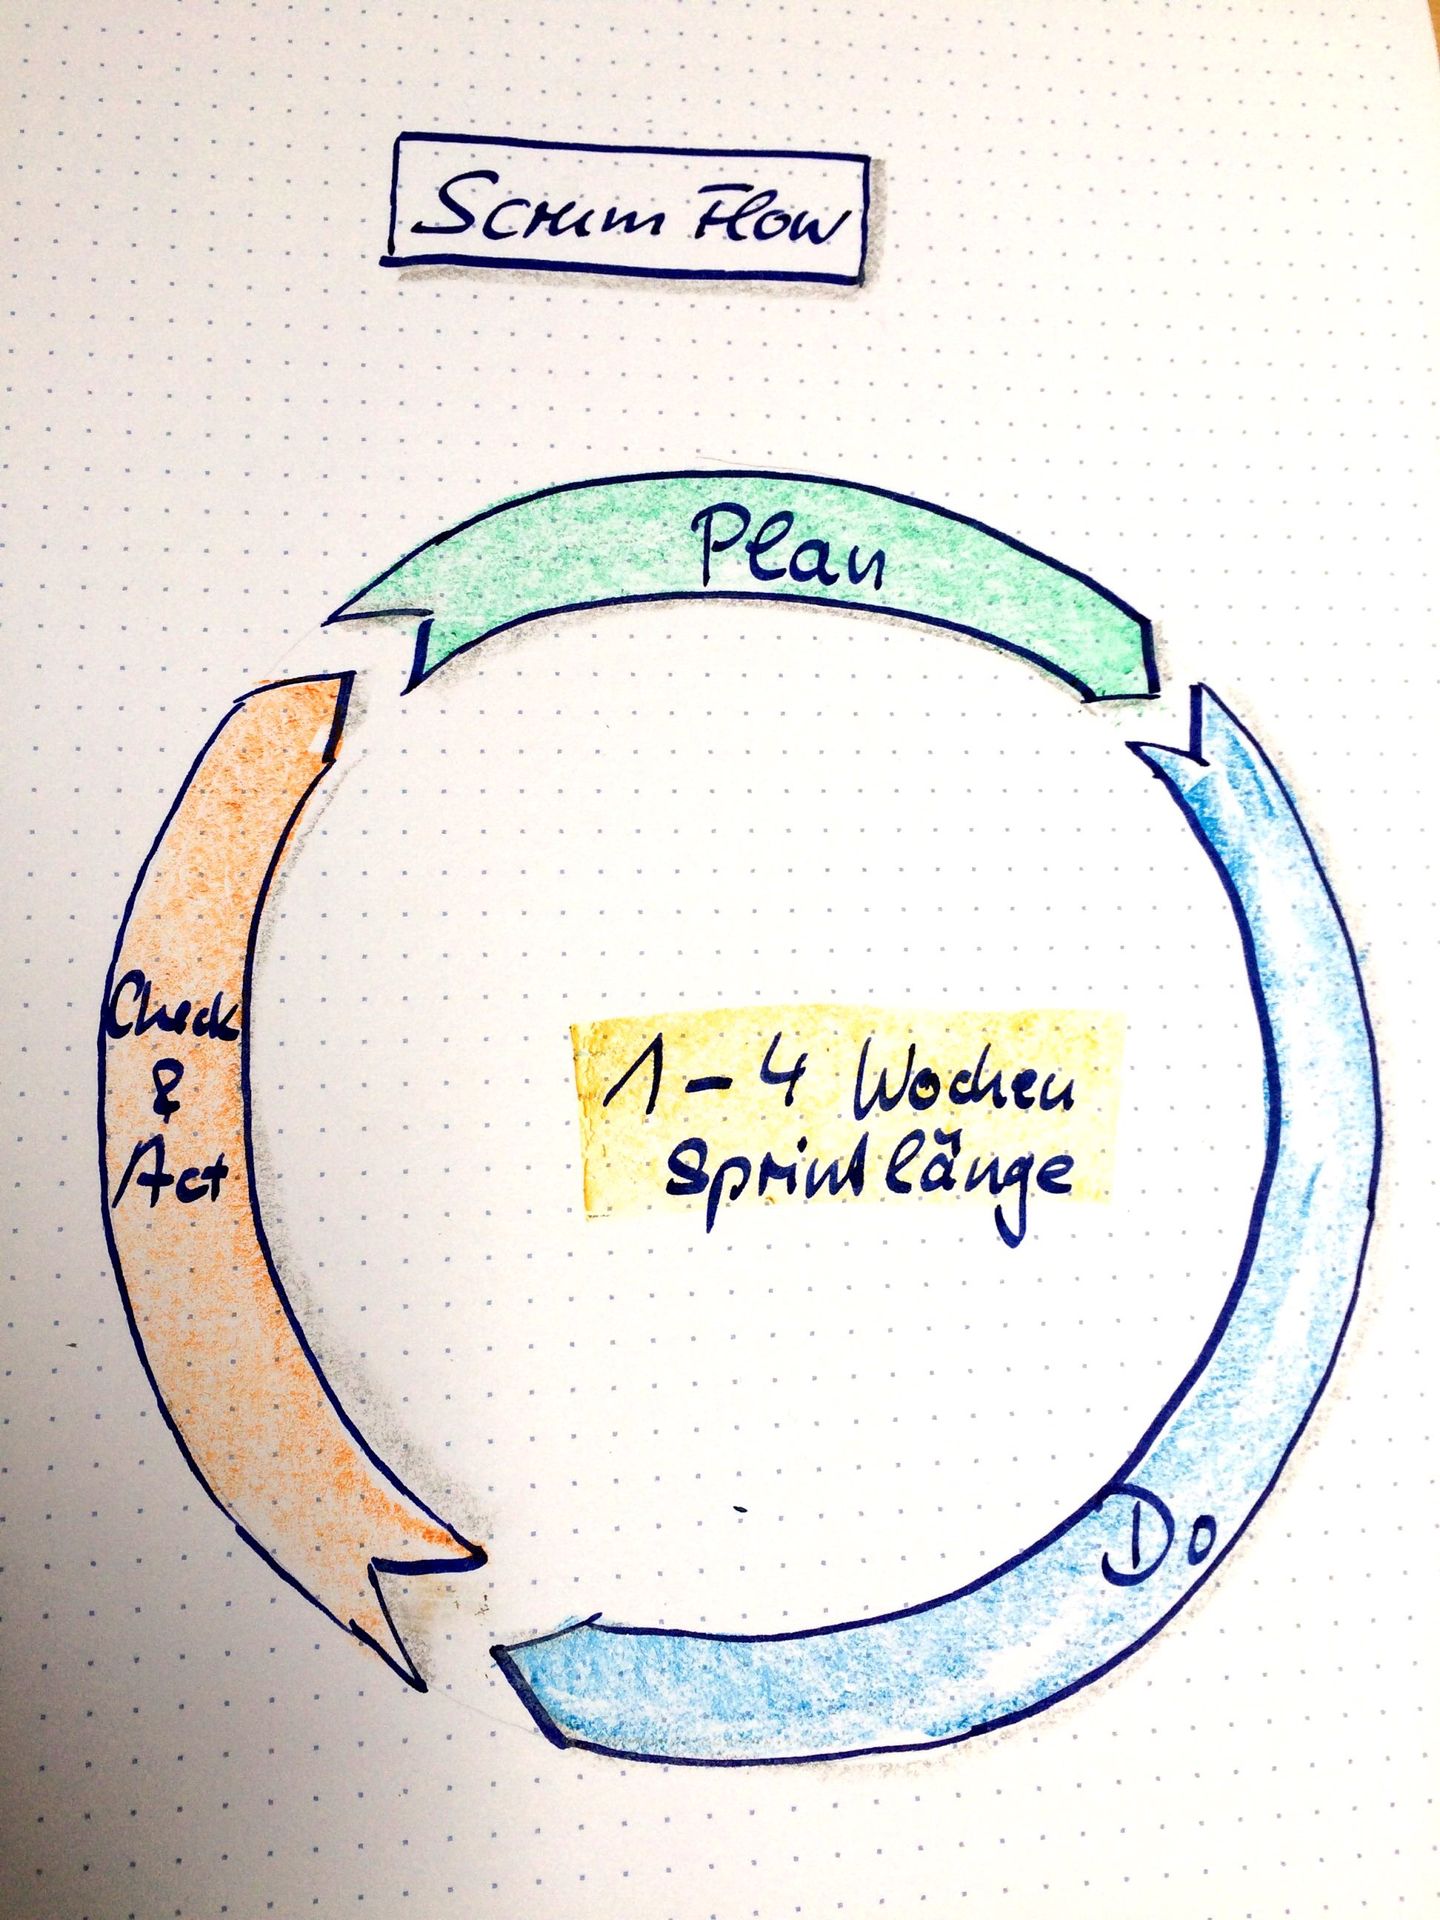 Scrum Flow
Plan
Check
&
Act
1 – 4 Wochen
Sprintlänge
Do